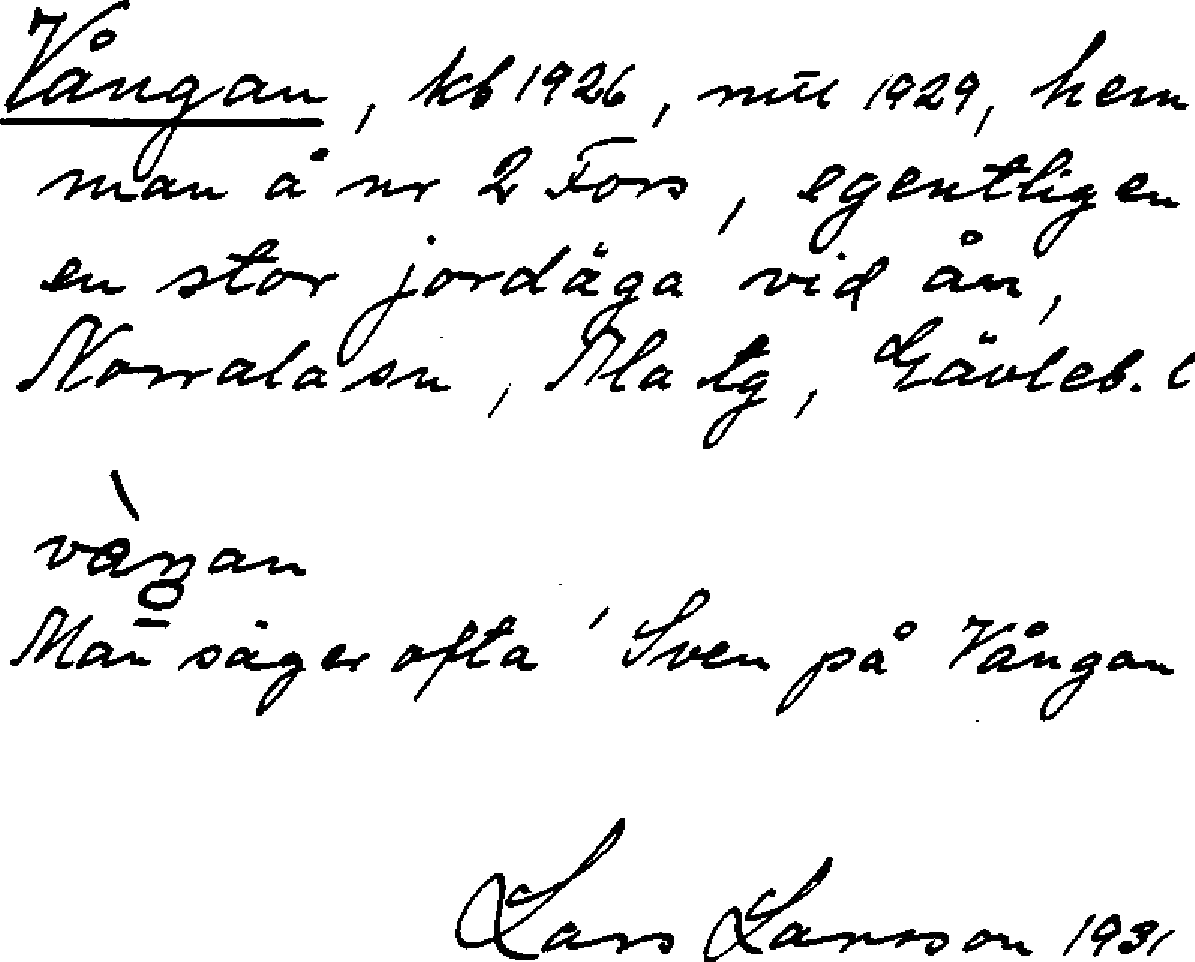 Vången, kb 1926, mtl 1929, hem
man å nr 2 Fors, egentligen
en stor jordäga vid ån,
Norrala sn, Ala tg, Gävleb. l
Man säger ofta 'Sven på Vångan
Lars Larsson 1931